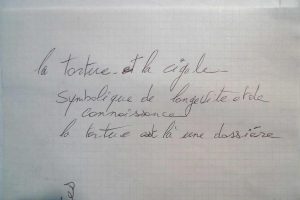 la tortue et la cigale
Symbolique de longévité et de
connaissance
la tortue est là une dossière